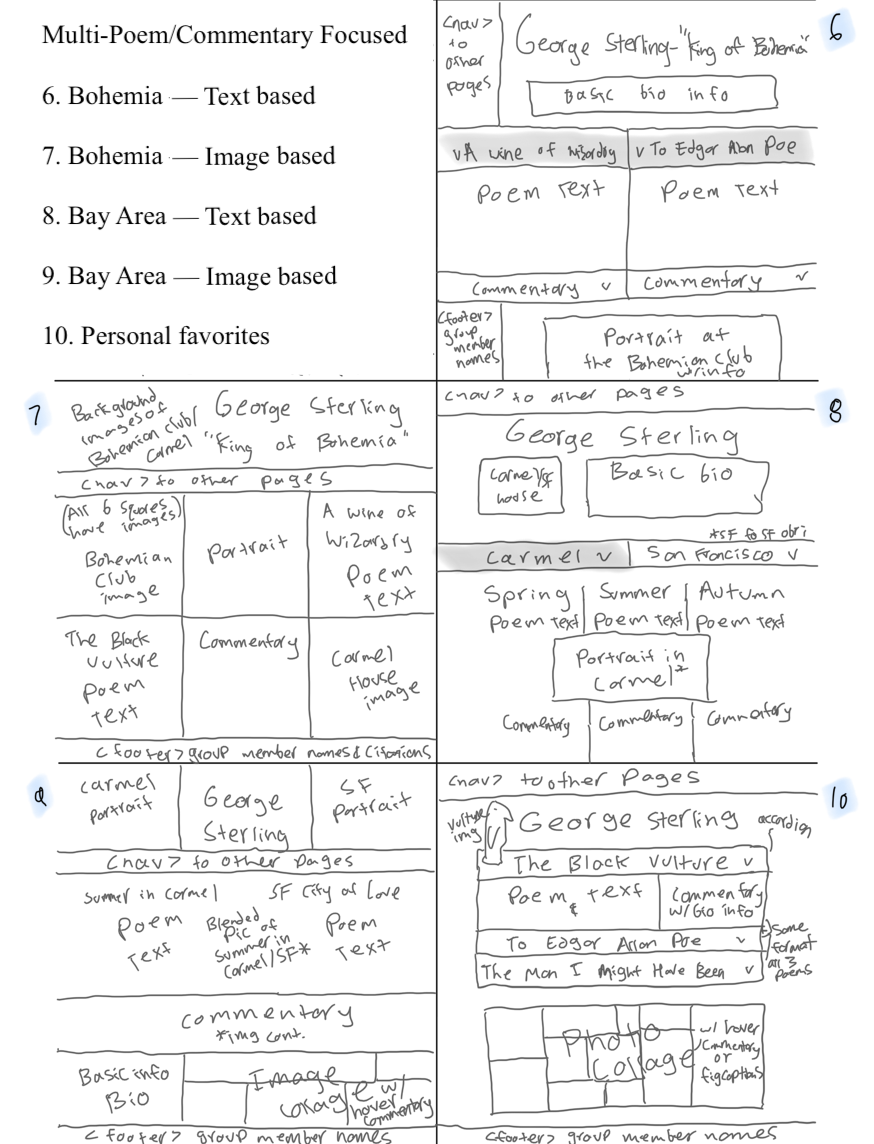 Multi-Poem/Commentary Focused
6. Bohemia — Text based
7. Bohemia — Image based
8. Bay Area — Text based
9. Bay Area — Image based
10. Personal favorites
6
<nav>
to
other
pages
George Sterling-"King of Bohemia"
Basic bio info
v A wine of Wizardry
v To Edgar Allan Poe
Poem Text
Poem Text
Commentary v
Commentary v
<footer>
group
member
names
Portrait at
the Bohemian Club
w/info
7
Background
images of
Bohemian club/
Carmel
George Sterling
"King of Bohemia"
<nav> to other pages
(All 6 squares
have images)
Bohemian
Club
image
Portrait
A wine of
Wizardry
Poem
text
The Black
Vulture
Poem
Text
Commentary
Carmel
House
image
<footer> group member names & Citations
8
<nav> to other pages
George Sterling
Carmel/SF
house
Basic bio
*SF to SF obri
Carmel v
San Francisco v
Spring
Poem text
Summer
Poem text
Autumn
Poem text
Portrait in
Carmel*
Commentary
Commentary
Commentary
9
Carmel
Portrait
George
Sterling
SF
Portrait
<nav> to other pages
Summer in Carmel
Poem
Text
Blended
Pic of
Summer in
Carmel/SF*
SF City of Love
Poem
Text
Commentary
*img cont.
Basic info
Bio
Image
collage w/
hover
commentary
<footer> group member names
10
<nav> to other pages
vulture
img
George Sterling
accordion
The Black Vulture v
Poem text
Commentary
w/ bio info
To Edgar Allan Poe v
The Man I Might Have Been v
Same
format
all 3
poems
Photo
Collage
w/ hover
/Commentary
or
figcaptions
<footer> group member names